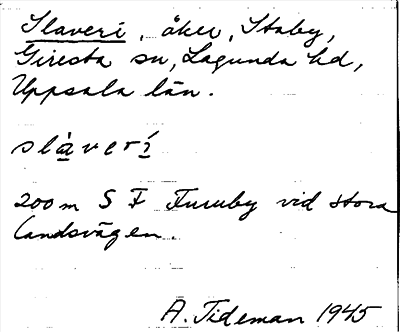 Slaveri, åker, Staby,
Giresta sn, Lagunda hd,
Uppsala län.
slàverì
200 m S F Furuby vid stora
landsvägen.
A. Tideman 1945